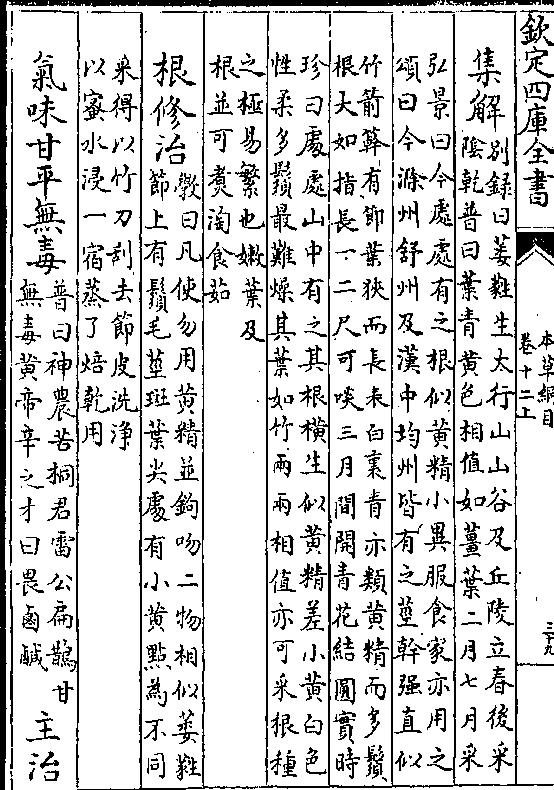 欽定四庫全書
本草綱目
卷十二上
三十九
集解别録曰萎蕤生太行山山谷及丘陵立春後采
陰乾普曰葉青黄色相值如薑葉二月七月采
弘景曰今處處有之根似黄精小異服食家亦用之
頌曰今滁州舒州及漢中均州皆有之莖幹强直似
竹箭簳有節葉狹而長表白裏青亦類黄精而多鬚
根大如指長一二尺可啖三月間開青花結圓實時
珍曰處處山中有之其根横生似黄精差小黄白色
性柔多鬚最難燥其葉如竹兩兩相值亦可采根種
之極易繁也嫩葉及
根並可煮淘食茹
根修治
斆曰凡使勿用黄精並鉤吻二物相似萎蕤
節上有鬚毛莖斑葉尖處有小黄點為不同
采得以竹刀刮去節皮洗淨
以蜜水浸一宿蒸了焙乾用
氣味甘平無毒
普曰神農苦桐君雷公扁鵲甘
無毒黄帝辛之才曰畏鹵鹹
主治